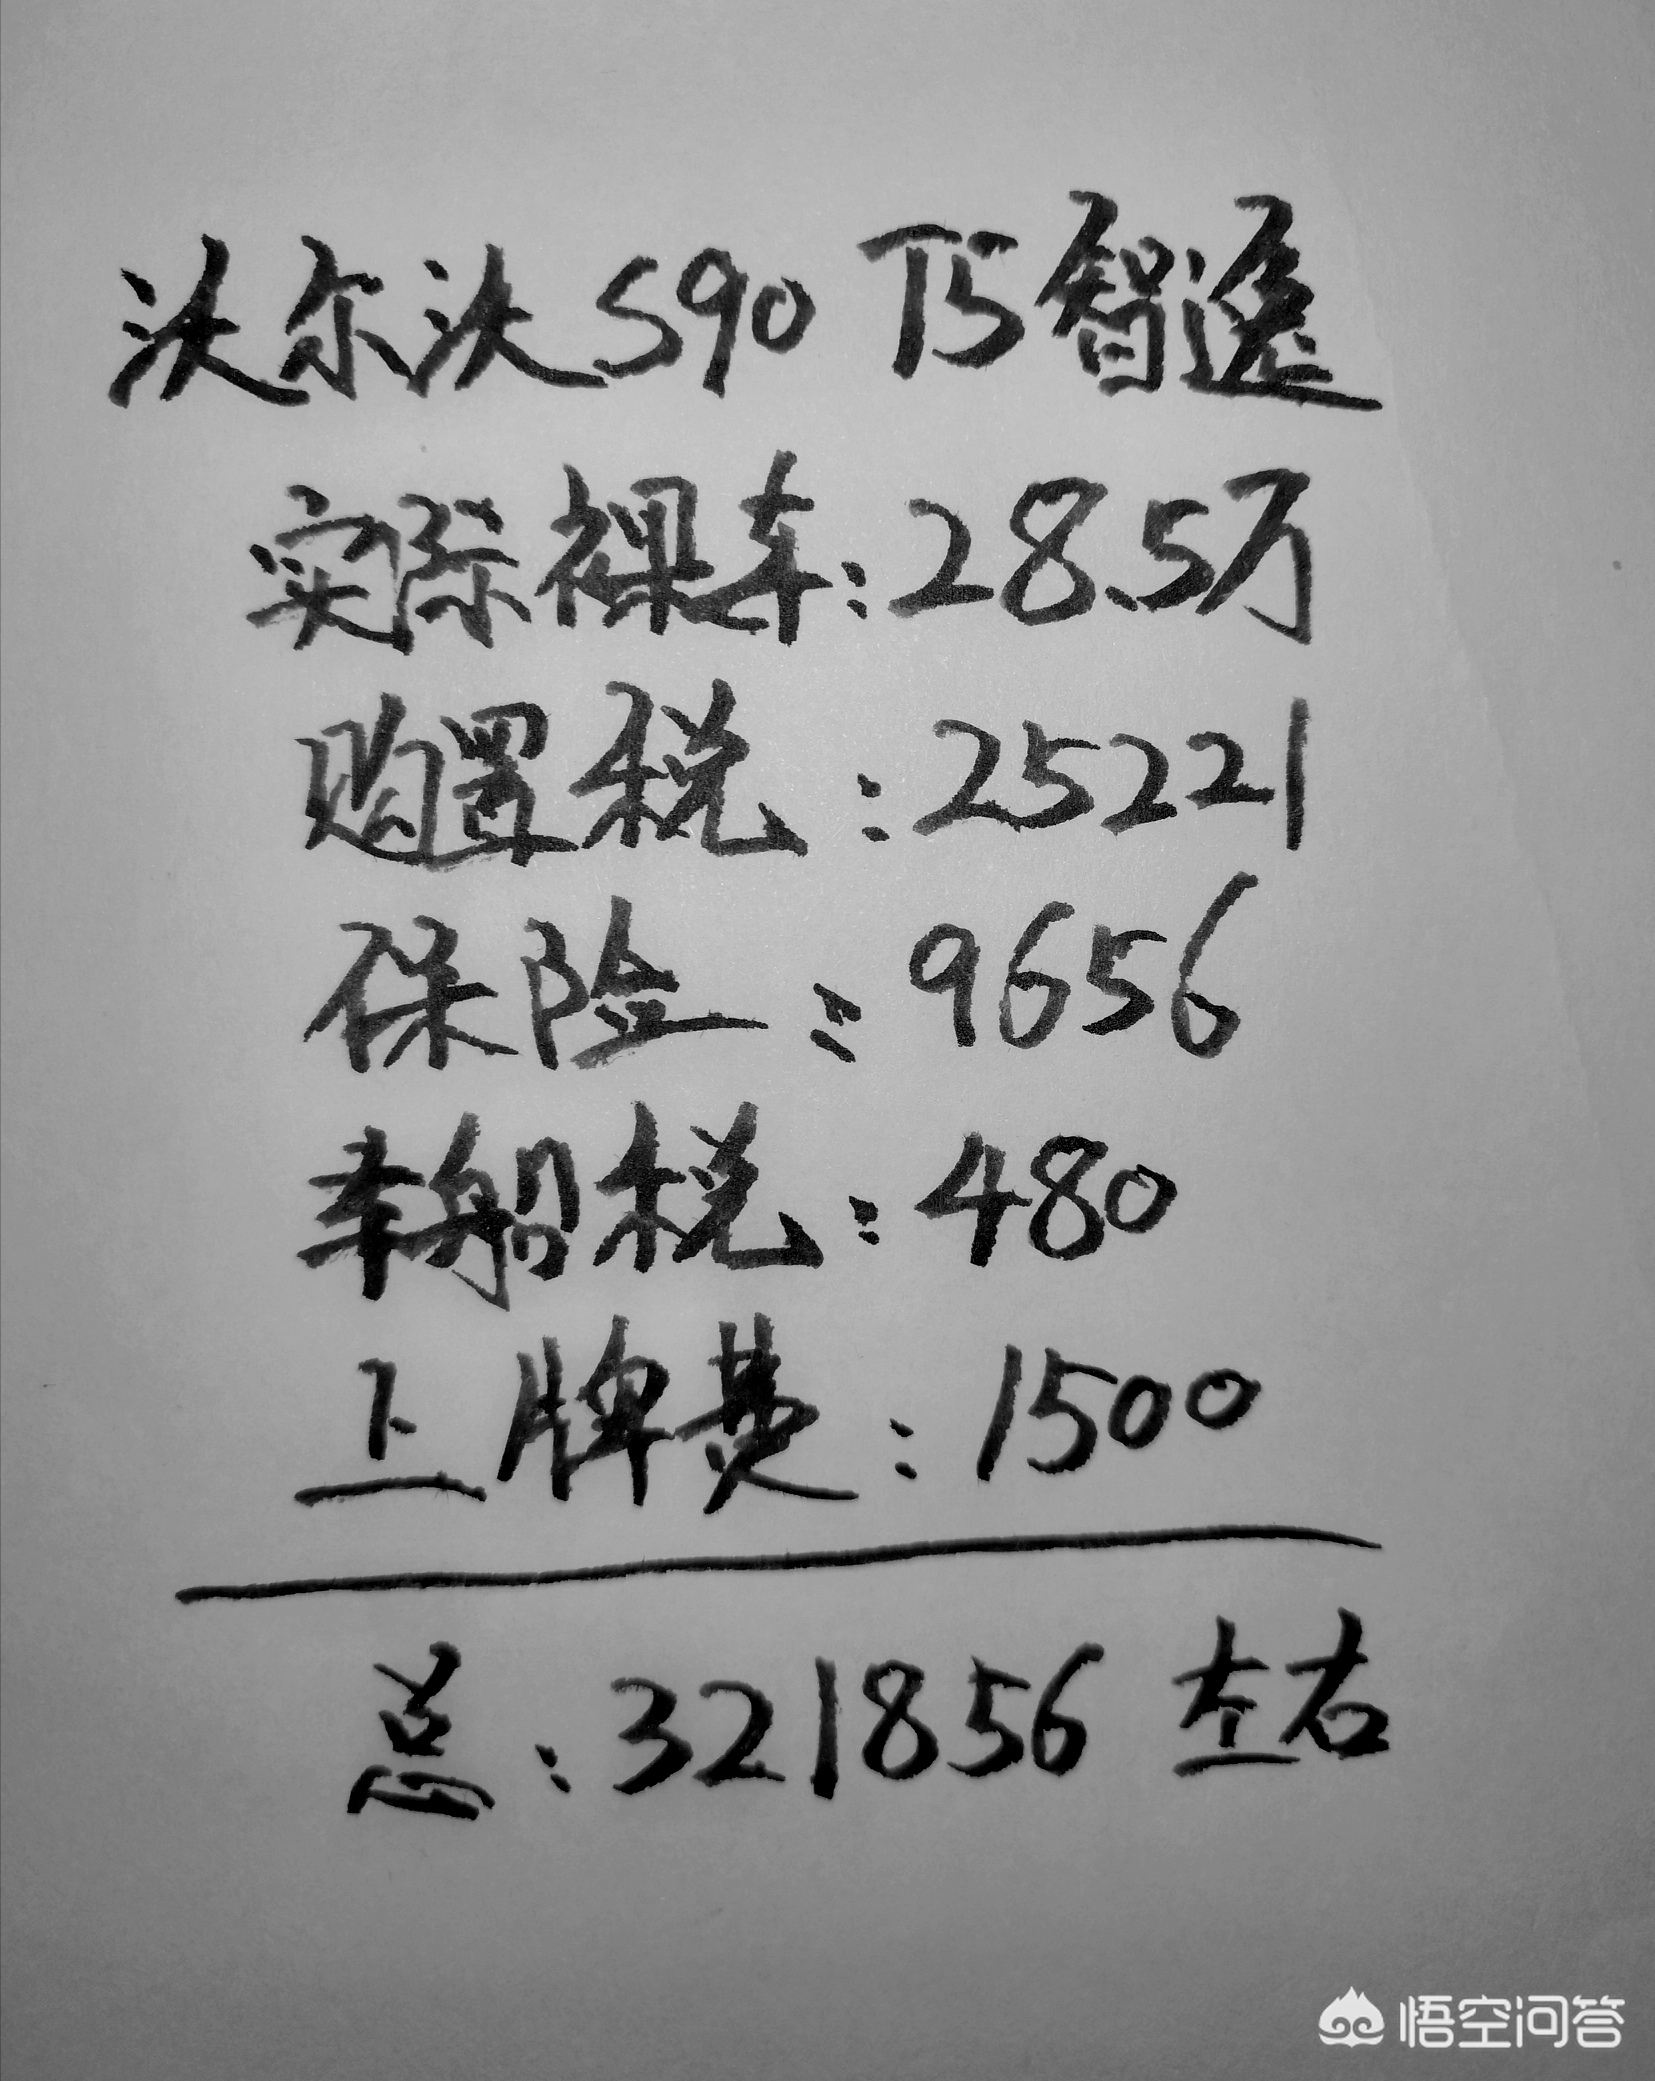 沃尔沃S90 T5智逸
实际裸车:28.5万
购置税:25221
保险:9656
车船税:480
上牌费:1500
总:321856 左右
悟空问答